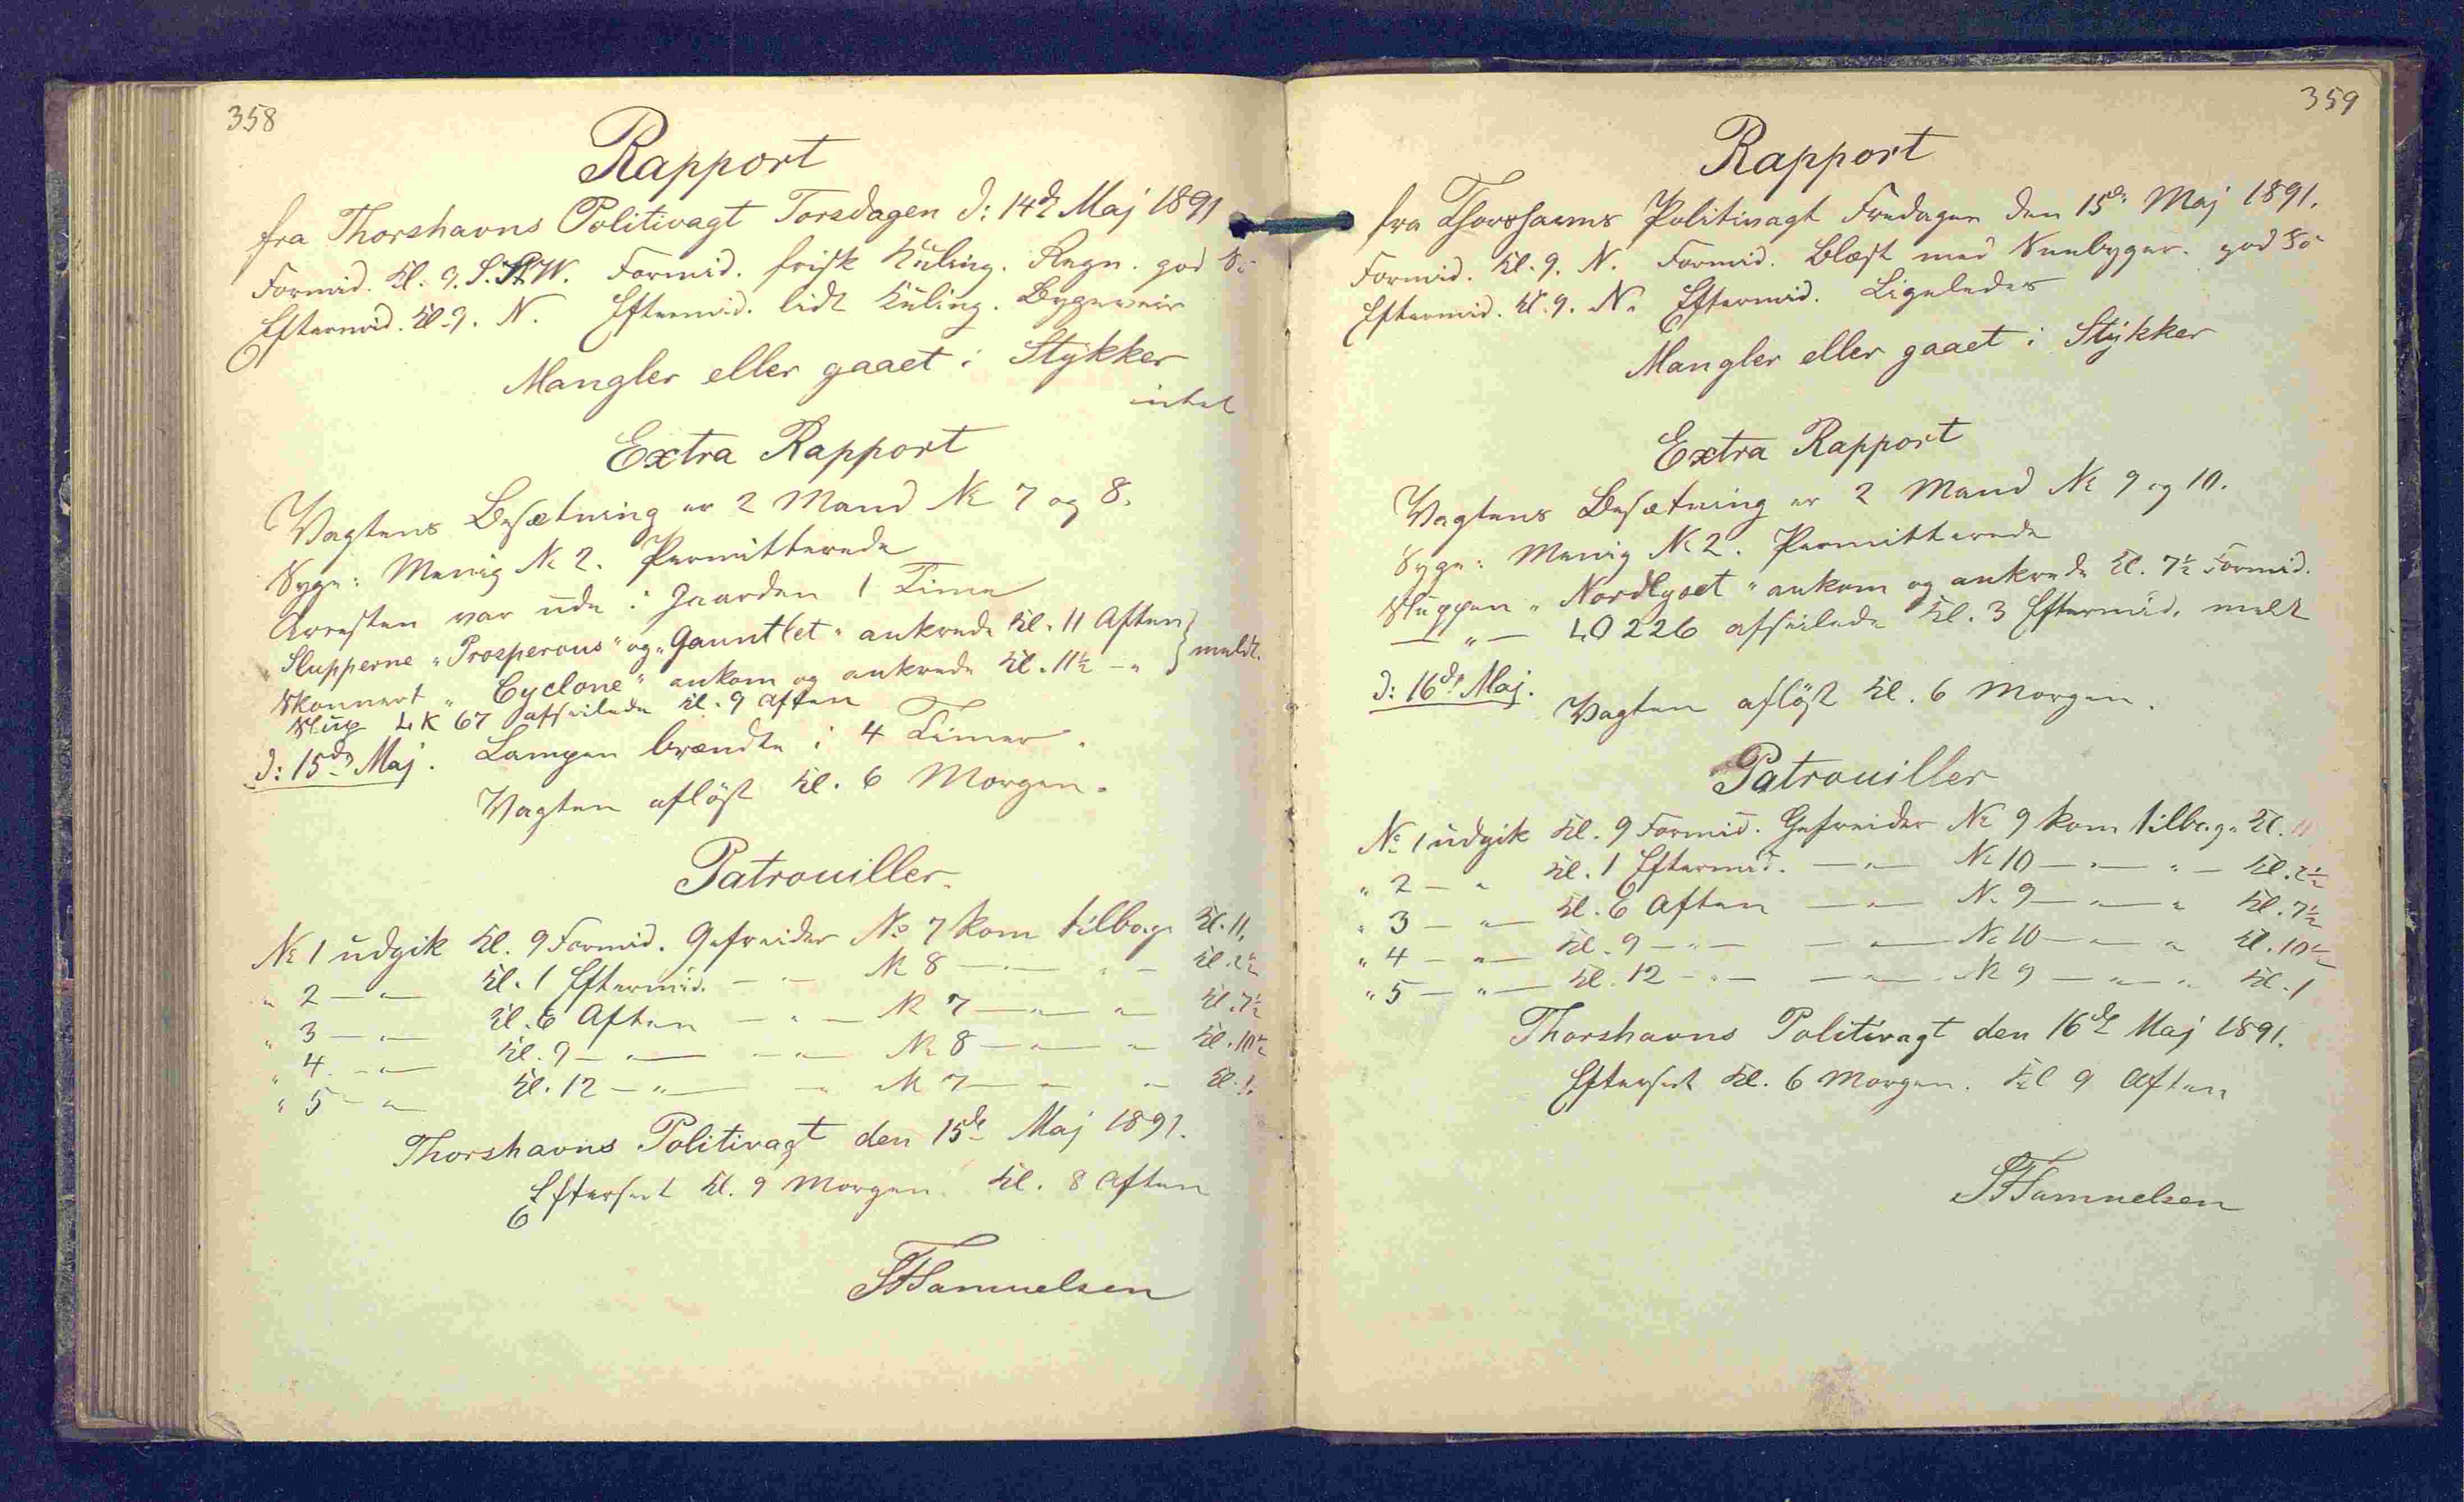 358
Rapport
fra Thorshavns Politivagt Torsdagen d: 14de Maj 1891
Formid. Kl. 9. S. W. Formid. frisk Kuling. Regn. god Sö
Eftermid. Kl. 9. N. Eftermid. lidt Kuling. Bygeveir
Mangler eller gaaet i Stykker
intet
Extra Rapport
Vagtens Besætning er 2 Mand No 7 og 8.
Syge: Menig No 2. Permitterede
Arresten var ude i Gaarden 1 Time
Slupperne "Prosperous" og "Gauntlet" ankrede Kl. 11 Aften } meldt.
Skonnert "Cyclone" ankom og ankrede Kl. 11½ - "
Slup LK 67 afseilede Kl. 9 Aften
d: 15de Maj. Lampen brændte i 4 Timer.
Vagten aflöst Kl. 6 Morgen.
Patrouiller.
No 1 udgik Kl. 9 Formid. Gefreider No 7 kom tilbage Kl. 11.
" 2 — " — Kl. 1 Eftermid. — " — No 8 — " — " — Kl. 2½
" 3 — " — Kl. 6 Aften — " — No 7 — " — " — Kl. 7½
" 4 — " — Kl. 9 — " — — " — No 8 — " — " Kl. 10½
" 5 — " — Kl. 12 — " — — " — No 7 — " — " Kl. 1.
Thorshavns Politivagt den 15de Maj 1891.
Efterseet Kl. 9 Morgen. Kl. 8 Aften
Samuelsen
359
Rapport
fra Thorshavns Politivagt Fredagen den 15de Maj 1891.
Formid. Kl. 9. N. Formid. Blæst med Sneebyger. god Sö
Eftermid. Kl. 9. N. Eftermid. Ligeledes
Mangler eller gaaet i Stykker
Extra Rapport
Vagtens Besætning er 2 Mand No 9 og 10.
Syge: Menig No 2. Permitterede
Sluppen "Nordlyset" ankom og ankrede Kl. 7½ Formid.
— " — LO 226 afseilede Kl. 3 Eftermid. meldt
d: 16de Maj.
Vagten aflöst Kl. 6 Morgen.
Patrouiller
No 1 udgik Kl. 9 Formid. Gefreider No 9 kom tilbage Kl. 11
" 2 — " Kl. 1 Eftermid. — " — No 10 — " — " — Kl. 2½
" 3 — " — Kl. 6 Aften — " — No 9 — " — " Kl. 7½
" 4 — " — Kl. 9 — " — — " — No 10 — " — " Kl. 10½
" 5 — " — Kl. 12 — " — — " — No 9 — " — " Kl. 1
Thorshavns Politivagt den 16de Maj 1891.
Efterseet Kl. 6 Morgen. Kl 9 Aften
Samuelsen